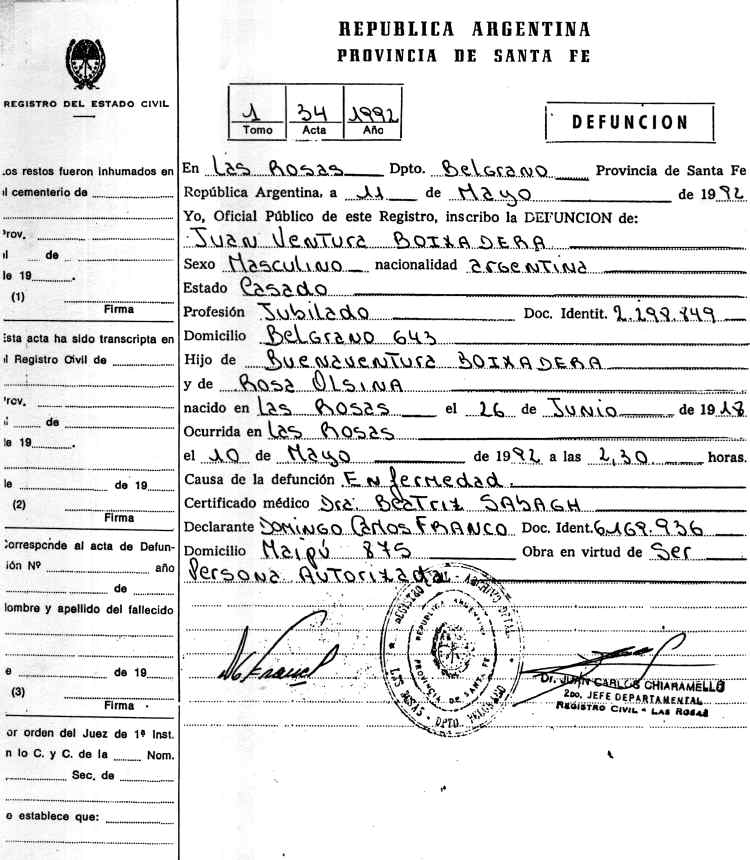 REPUBLICA ARGENTINA
PROVINCIA DE SANTA FE
REGISTRO DEL ESTADO CIVIL
1 34 1992
Tomo Acta Año
DEFUNCION
Los restos fueron inhumados en
al cementerio de
Prov.
de
de 19
(1)
Firma
Esta acta ha sido transcripta en
el Registro Civil de
Prov.
de
de 19
de de 19
(2)
Firma
Corresponde al acta de Defun-
ción Nº año
de
Nombre y apellido del fallecido
de 19
(3)
Firma
Por orden del Juez de 1ª Inst.
en lo C. y C. de la Nom.
Sec. de
se establece que:
En Las Rosas Dpto. Belgrano Provincia de Santa Fe
República Argentina, a 11 de Mayo de 1992
Yo, Oficial Público de este Registro, inscribo la DEFUNCION de:
Juan Ventura BOIXADERA
Sexo Masculino nacionalidad argentina
Estado Casado
Profesión Jubilado Doc. Identit. 2.298.849
Domicilio Belgrano 643
Hijo de Buenaventura BOIXADERA
y de Rosa OLSINA
nacido en Las Rosas el 26 de Junio de 1918
Ocurrida en Las Rosas
el 10 de Mayo de 1992 a las 2,30 horas.
Causa de la defunción Enfermedad.
Certificado médico Dra. Beatriz SABAGH
Declarante Domingo Carlos FRANCO Doc. Ident. 6.168.936
Domicilio Maipú 875 Obra en virtud de Ser
Persona Autorizada.
REGISTRO CIVIL
REPUBLICA ARGENTINA
PROVINCIA DE SANTA FE
LAS ROSAS - DPTO. BELGRANO
Dr. JUAN CARLOS CHIARAMELLO
2DO. JEFE DEPARTAMENTAL
REGISTRO CIVIL - LAS ROSAS